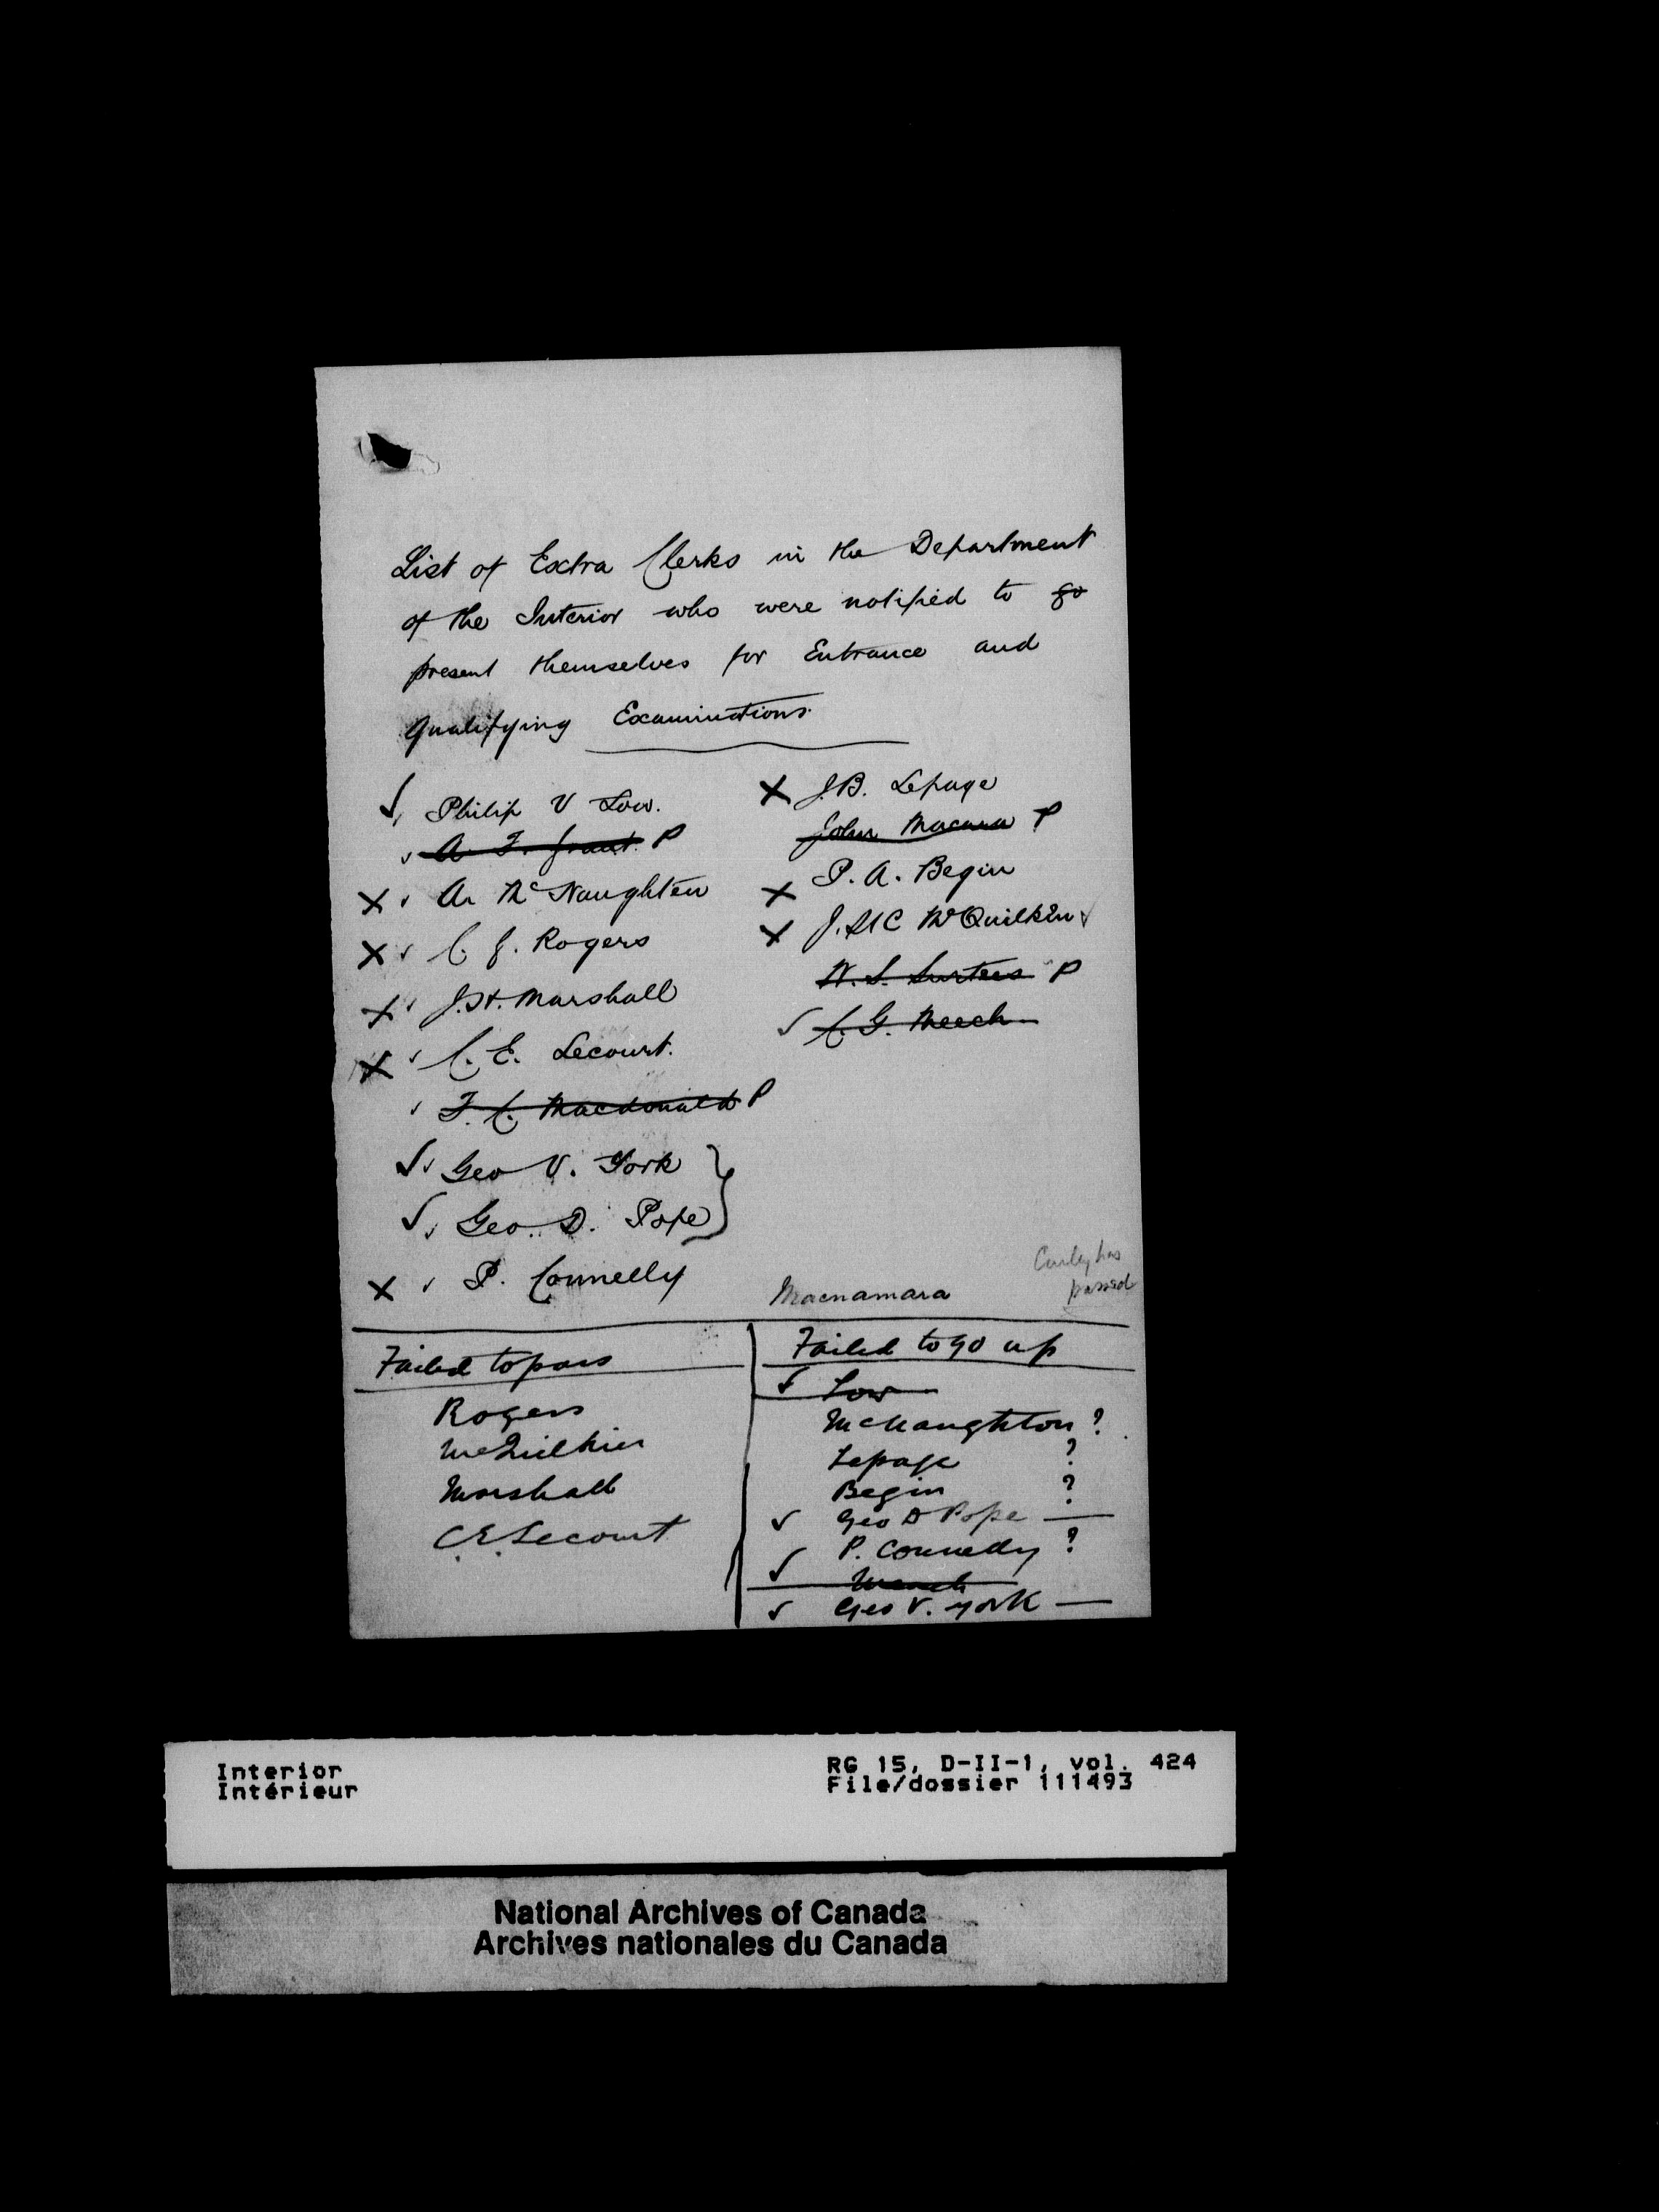 List of Extra Clerks in the Department
of the Interior who were notified to go
present themselves for Entrance and
Qualifying Examinations
✓ Philip V Low.
✓ A F. Grant. P
X ✓ A. McNaughten
X ✓ C J. Rogers
X ✓ J. H. Marshall
X ✓ C. E. Lecourt.
✓ F. C. Macdonald P
✓ ✓ Geo V. York }
✓ ✓ Geo. D. Pope
X ✓ P. Connelly
X J.B. Lepage
John Macara P
X P. A. Begin
X J. St C McQuilkin ✓
W. S. Surtees P
✓ C. G. Meech
Curley has
passed
Macnamara
Failed to pass
Rogers
McQuilkin
Marshall
C.E. Lecourt
Failed to go up
✓ Low
McNaughton ?
Lepage ?
Begin ?
✓ Geo D Pope —
P. Connelly ?
✓ Meech
✓ Geo V. York —
Interior
Intérieur
RG 15, D-II-1, vol. 424
File/dossier 111493
National Archives of Canada
Archives nationales du Canada